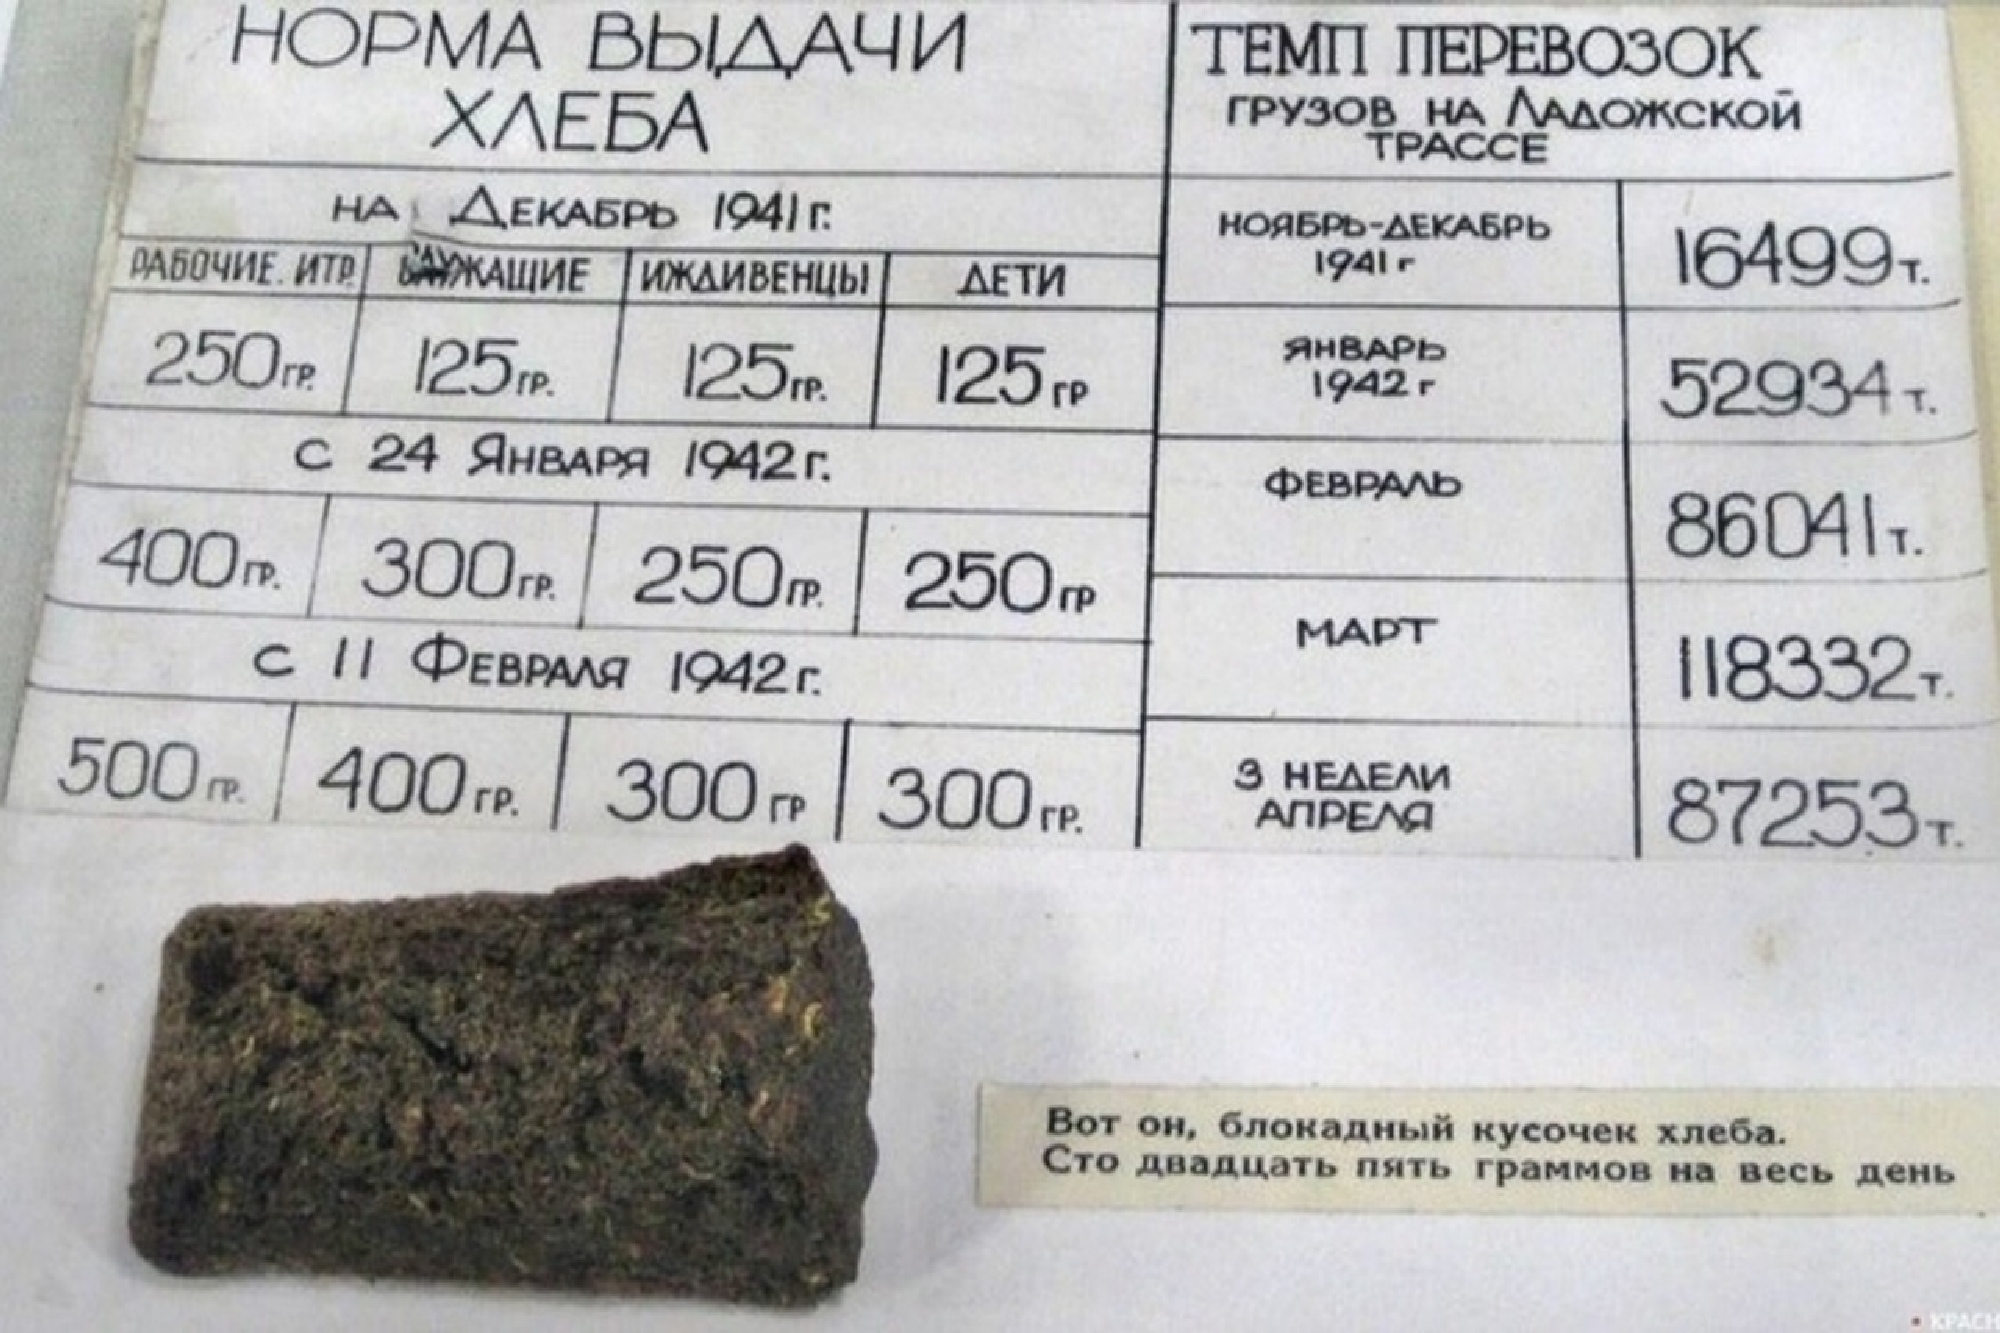 НОРМА ВЫДАЧИ
ХЛЕБА
НА ДЕКАБРЬ 1941 г.
РАБОЧИЕ. ИТР СЛУЖАЩИЕ ИЖДИВЕНЦЫ ДЕТИ
250 ГР. 125 ГР. 125 ГР. 125 ГР
С 24 ЯНВАРЯ 1942 г.
400 ГР. 300 ГР. 250 ГР. 250 ГР
С 11 ФЕВРАЛЯ 1942 г.
500 ГР. 400 ГР. 300 ГР 300 ГР.
ТЕМП ПЕРЕВОЗОК
ГРУЗОВ НА ЛАДОЖСКОЙ
ТРАССЕ
НОЯБРЬ-ДЕКАБРЬ
1941 г
16499 т.
ЯНВАРЬ
1942 г
52934 т.
ФЕВРАЛЬ
86041 т.
МАРТ
118332 т.
3 НЕДЕЛИ
АПРЕЛЯ
87253 т.
Вот он, блокадный кусочек хлеба.
Сто двадцать пять граммов на весь день